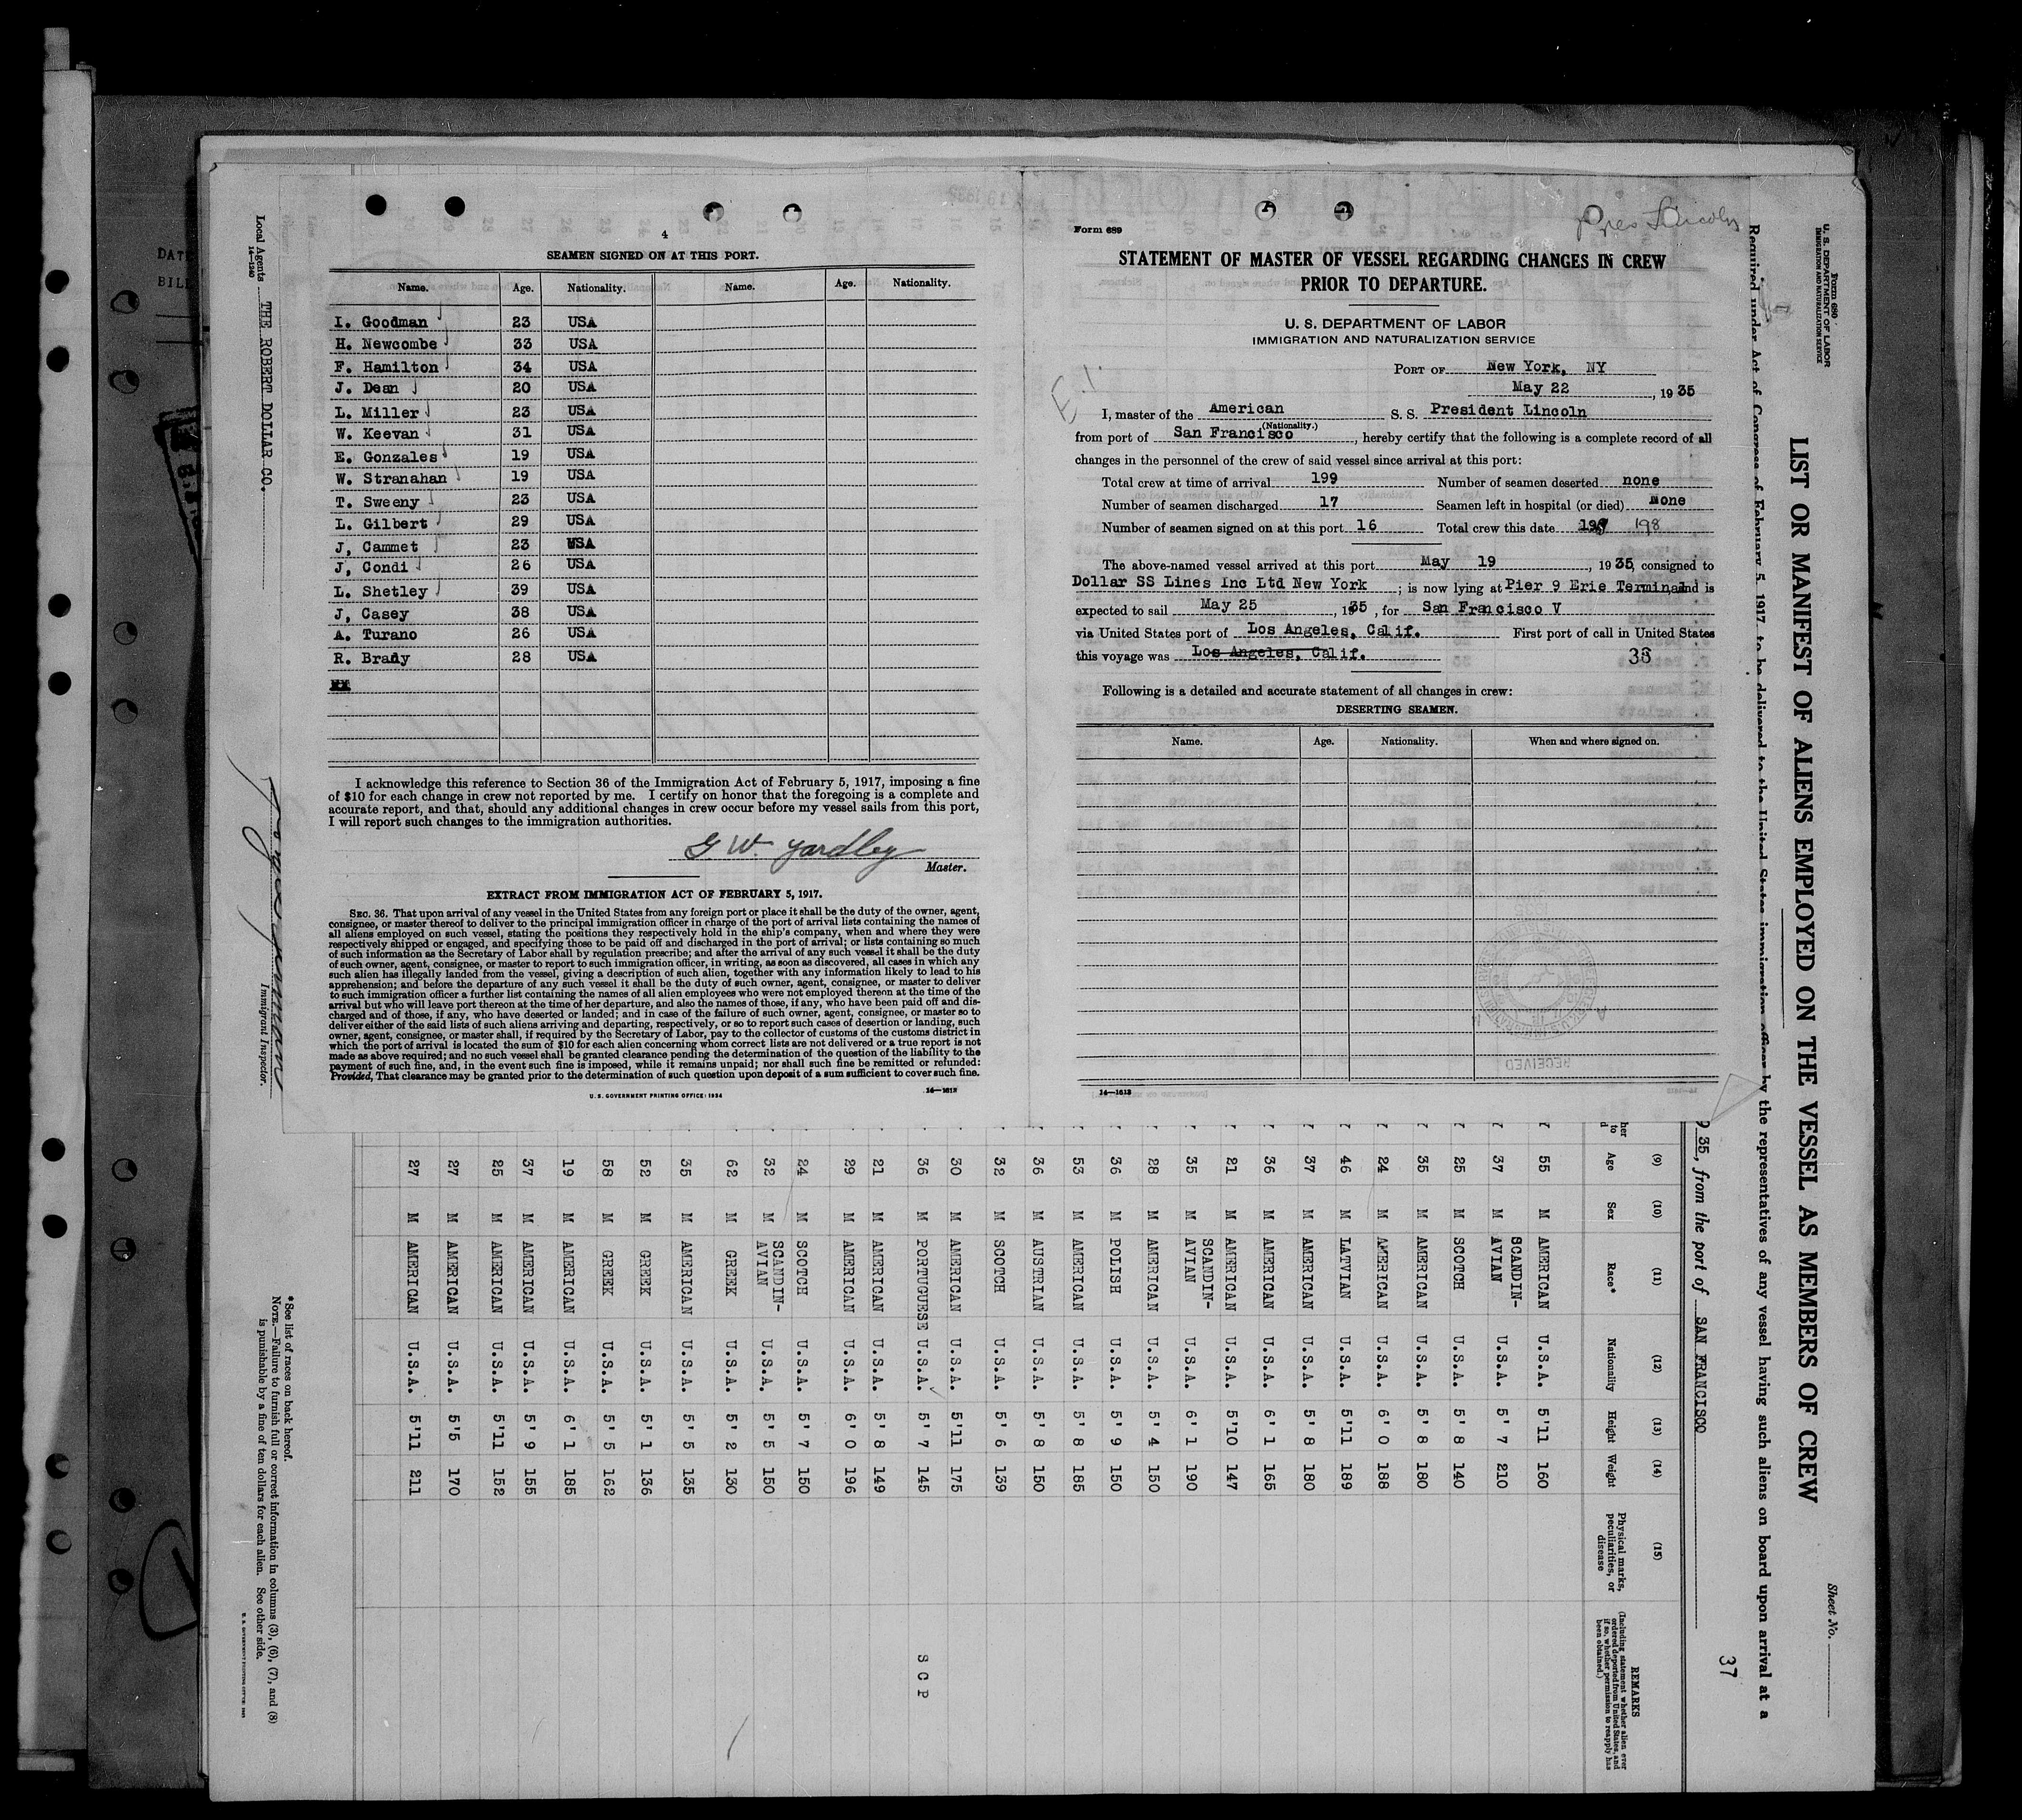 4
SEAMEN SIGNED ON AT THIS PORT.
Name. Age. Nationality. Name. Age. Nationality.
I. Goodman 23 USA
H. Newcombe 33 USA
F. Hamilton 34 USA
J. Dean 20 USA
L. Miller 23 USA
W. Keevan 31 USA
E. Gonzales 19 USA
W. Stranahan 19 USA
T. Sweeny 23 USA
L. Gilbert 29 USA
J, Cammet 23 USA
J, Condi 26 USA
L. Shetley 39 USA
J, Casey 38 USA
A. Turano 26 USA
R. Brady 28 USA
I acknowledge this reference to Section 36 of the Immigration Act of February 5, 1917, imposing a fine
of $10 for each change in crew not reported by me. I certify on honor that the foregoing is a complete and
accurate report, and that, should any additional changes in crew occur before my vessel sails from this port,
I will report such changes to the immigration authorities.
G W. Yardley
Master.
EXTRACT FROM IMMIGRATION ACT OF FEBRUARY 5, 1917.
SEC. 36. That upon arrival of any vessel in the United States from any foreign port or place it shall be the duty of the owner, agent,
consignee, or master thereof to deliver to the principal immigration officer in charge of the port of arrival lists containing the names of
all aliens employed on such vessel, stating the positions they respectively hold in the ship's company, when and where they were
respectively shipped or engaged, and specifying those to be paid off and discharged in the port of arrival; or lists containing so much
of such information as the Secretary of Labor shall by regulation prescribe; and after the arrival of any such vessel it shall be the duty
of such owner, agent, consignee, or master to report to such immigration officer, in writing, as soon as discovered, all cases in which any
such alien has illegally landed from the vessel, giving a description of such alien, together with any information likely to lead to his
apprehension; and before the departure of any such vessel it shall be the duty of such owner, agent, consignee, or master to deliver
to such immigration officer a further list containing the names of all alien employees who were not employed thereon at the time of the
arrival but who will leave port thereon at the time of her departure, and also the names of those, if any, who have been paid off and dis-
charged and of those, if any, who have deserted or landed; and in case of the failure of such owner, agent, consignee, or master so to
deliver either of the said lists of such aliens arriving and departing, respectively, or so to report such cases of desertion or landing, such
owner, agent, consignee, or master shall, if required by the Secretary of Labor, pay to the collector of customs of the customs district in
which the port of arrival is located the sum of $10 for each alien concerning whom correct lists are not delivered or a true report is not
made as above required; and no such vessel shall be granted clearance pending the determination of the question of the liability to the
payment of such fine, and, in the event such fine is imposed, while it remains unpaid; nor shall such fine be remitted or refunded:
Provided, That clearance may be granted prior to the determination of such question upon deposit of a sum sufficient to cover such fine.
U. S. GOVERNMENT PRINTING OFFICE: 1934 14—1613
Pres Lincoln
Form 689
STATEMENT OF MASTER OF VESSEL REGARDING CHANGES IN CREW
PRIOR TO DEPARTURE.
U. S. DEPARTMENT OF LABOR
IMMIGRATION AND NATURALIZATION SERVICE
PORT OF New York, NY
May 22, 1935
I, master of the American S. S. President Lincoln
(Nationality.)
from port of San Francisco, hereby certify that the following is a complete record of all
changes in the personnel of the crew of said vessel since arrival at this port:
Total crew at time of arrival 199 Number of seamen deserted none
Number of seamen discharged 17 Seamen left in hospital (or died) None
Number of seamen signed on at this port 16 Total crew this date 198
The above-named vessel arrived at this port May 19, 1935, consigned to
Dollar SS Lines Inc Ltd New York; is now lying at Pier 9 Erie Terminal and is
expected to sail May 25, 1935, for San Francisco V
via United States port of Los Angeles, Calif. First port of call in United States
this voyage was Los Angeles, Calif.
38
Following is a detailed and accurate statement of all changes in crew:
DESERTING SEAMEN.
Name. Age. Nationality. When and where signed on.
RECEIVED
14—1613
Form 680
U. S. DEPARTMENT OF LABOR
IMMIGRATION AND NATURALIZATION SERVICE
Sheet No.
LIST OR MANIFEST OF ALIENS EMPLOYED ON THE VESSEL AS MEMBERS OF CREW
Required under Act of Congress of February 5, 1917, to be delivered to the United States immigration officer by the representatives of any vessel having such aliens on board upon arrival at a
37
35, from the port of SAN FRANCISCO
(9) (10) (11) (12) (13) (14) (15)
Age Sex Race* Nationality Height Weight Physical marks, peculiarities, or disease
REMARKS
(Including statement whether alien ever ordered deported from United States, and if so, whether permission to reapply has been obtained.)
55 M AMERICAN U.S.A. 5'11 160
37 M SCANDIN-AVIAN U.S.A. 5' 7 210
25 M SCOTCH U.S.A. 5' 8 140
35 M AMERICAN U.S.A. 5' 8 180
24 M AMERICAN U.S.A. 6' 0 188
46 M LATVIAN U.S.A. 5'11 189
37 M AMERICAN U.S.A. 5' 8 180
36 M AMERICAN U.S.A. 6' 1 165
21 M AMERICAN U.S.A. 5'10 147
35 M SCANDIN-AVIAN U.S.A. 6' 1 190
28 M AMERICAN U.S.A. 5' 4 150
36 M POLISH U.S.A. 5' 9 150
53 M AMERICAN U.S.A. 5' 8 185
36 M AUSTRIAN U.S.A. 5' 8 150
32 M SCOTCH U.S.A. 5' 6 139
30 M AMERICAN U.S.A. 5'11 175
36 M PORTUGUESE U.S.A. 5' 7 145 S C P
21 M AMERICAN U.S.A. 5' 8 149
29 M AMERICAN U.S.A. 6' 0 196
24 M SCOTCH U.S.A. 5' 7 150
32 M SCANDIN-AVIAN U.S.A. 5' 5 150
62 M GREEK U.S.A. 5' 2 130
35 M AMERICAN U.S.A. 5' 5 135
52 M GREEK U.S.A. 5' 1 136
58 M GREEK U.S.A. 5' 5 162
19 M AMERICAN U.S.A. 6' 1 185
37 M AMERICAN U.S.A. 5' 9 155
25 M AMERICAN U.S.A. 5'11 152
27 M AMERICAN U.S.A. 5'5 170
27 M AMERICAN U.S.A. 5'11 211
*See list of races on back hereof.
NOTE.—Failure to furnish full or correct information in columns (3), (6), (7), and (8)
is punishable by a fine of ten dollars for each alien. See other side.
Local Agents THE ROBERT DOLLAR CO.
14—1240
Immigrant Inspector.